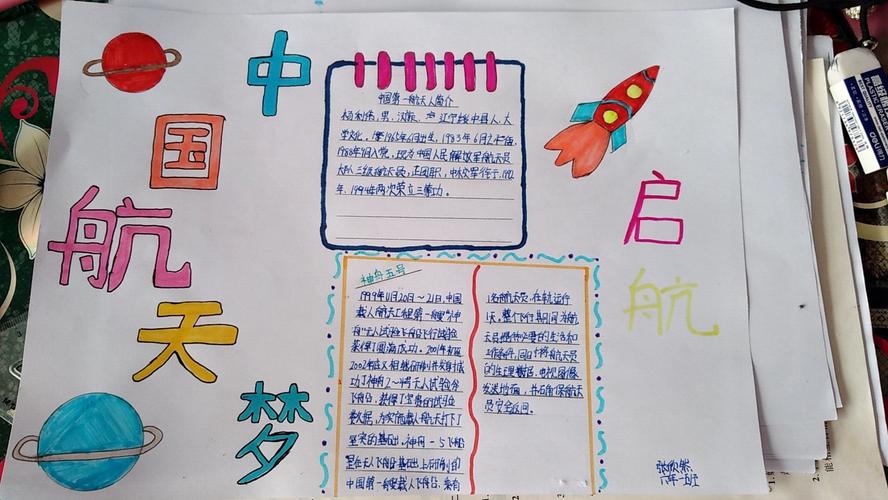 中
国
航
天
梦
启
航
中国第一航天人简介
杨利伟,男,汉族,辽宁绥中县人,大
学文化。1965年6月出生,1983年6月入伍,
1988年9月入党,现为中国人民解放军航天员
大队三级航天员,正团职,中校军衔于,1992
年、1994年两次荣立三等功。
神舟五号
1999年11月20日~21日,中国
载人航天工程第一艘"神
舟"无人试验飞船飞行试验
获得了圆满成功。2001年初至
2002年底又相继研制并发射成
功了神舟2~4号无人试验
飞船,获得了宝贵的试验
数据,为实施载人航天打下了
坚实的基础。神舟-5飞船
是在无人飞船基础上研制的
中国第一艘载人飞船,乘有
1名航天员,在轨运行
1天。整个飞行期间为航
天员提供必要的生活和
工作条件,同时将航天员
的生理数据、电视图像
发送地面,并确保航天
员安全返回。
张欣然
六年一班
PLASTIC ERASER
deli